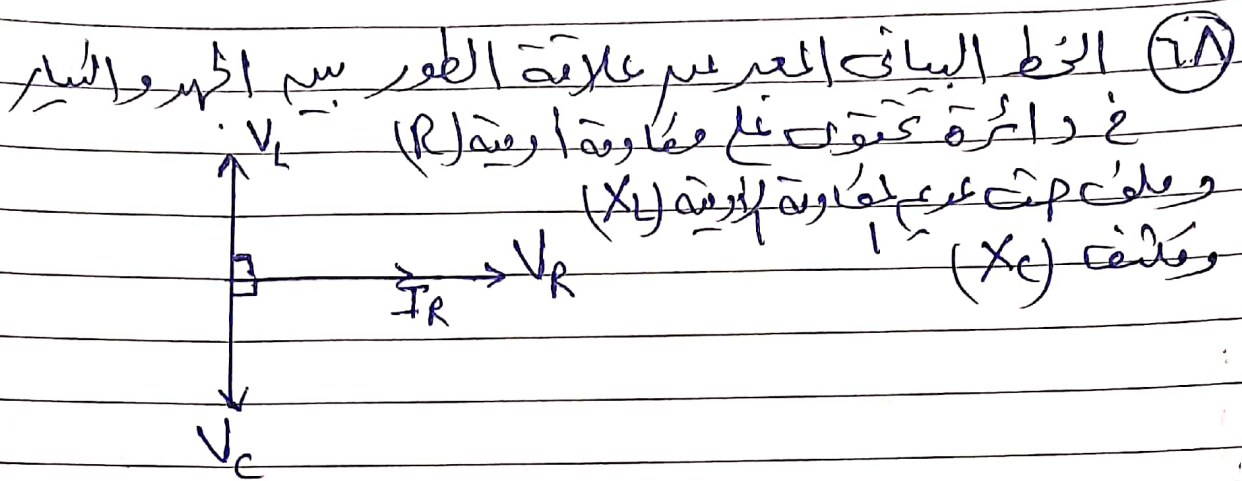 ٦٨ الخط البيانى المعبر عن علاقة الطور بين الجهد والتيار
فى دائرة تحتوى على مقاومة أومية (R)
وملف حث عديم المقاومة الأومية (XL)
ومكثف (XC)
VL
VR
IR
VC